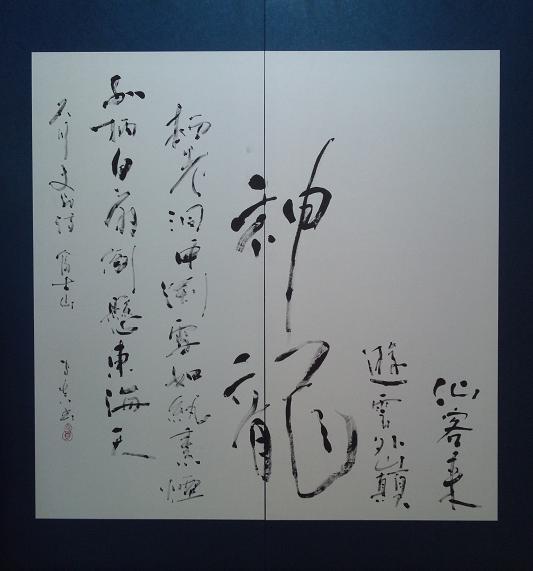 仙客来
遊雲外巓
神龍
栖老洞中渕雪如紈素煙
如柄白扇倒懸東海天
石川丈山詩 富士山